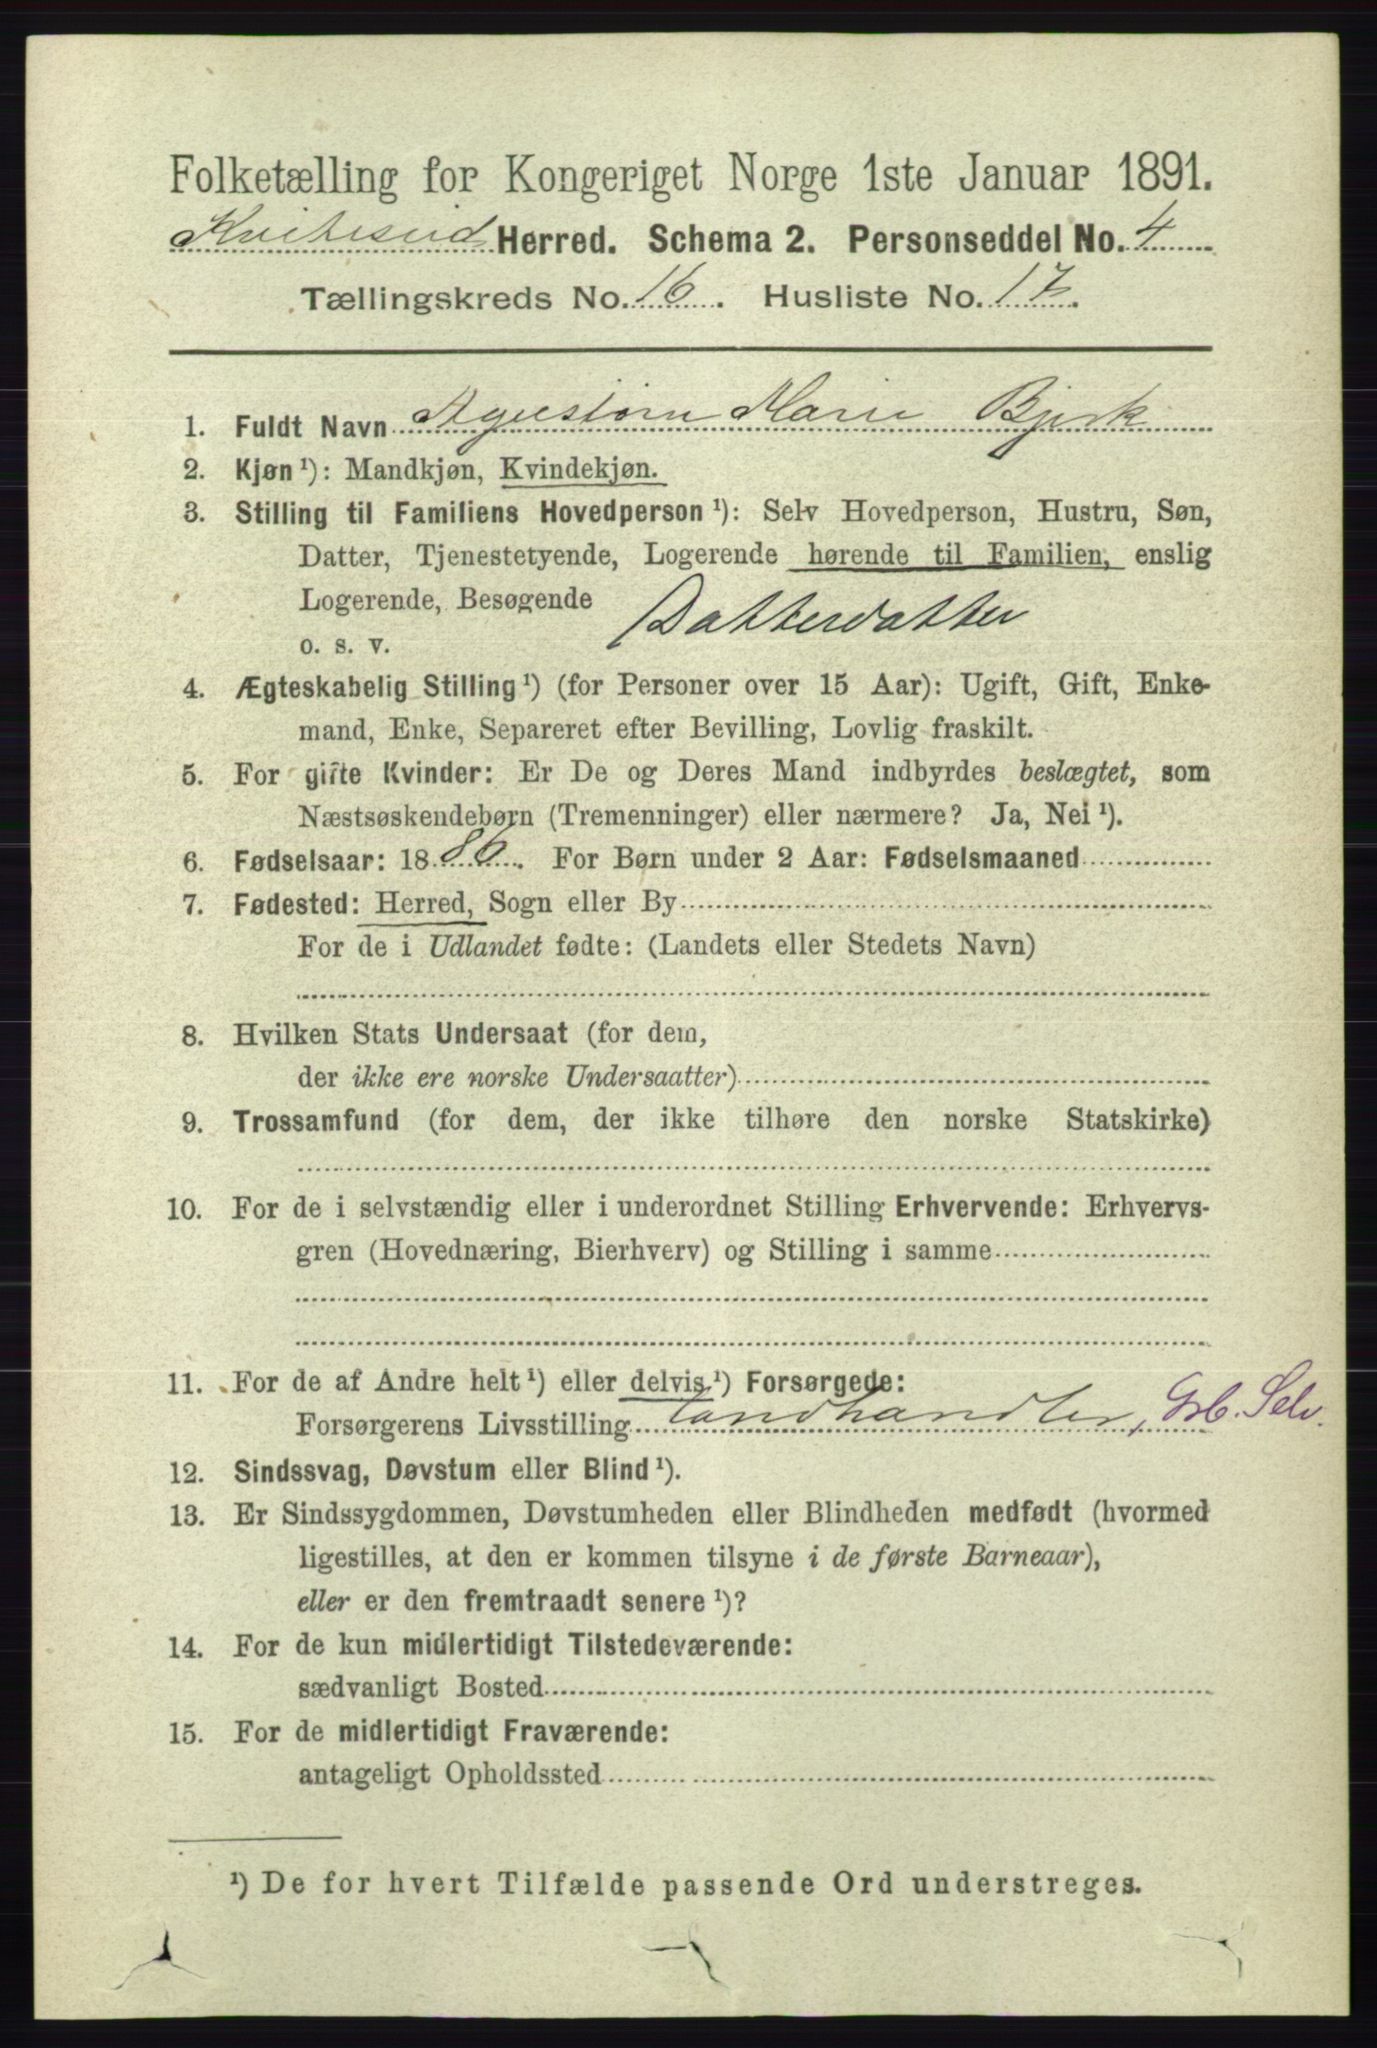 Folketælling for Kongeriget Norge 1ste Januar 1891.
Kviteseid Herred. Schema 2. Personseddel No. 4
Tællingskreds No. 16. Husliste No. 17.
1. Fuldt Navn Marie Bjerk
2. Kjøn ¹): Mandkjøn, Kvindekjøn.
3. Stilling til Familiens Hovedperson ¹): Selv Hovedperson, Hustru, Søn,
Datter, Tjenestetyende, Logerende hørende til Familien, enslig
Logerende, Besøgende
o. s. v. Datterdatter
4. Ægteskabelig Stilling ¹) (for Personer over 15 Aar): Ugift, Gift, Enke-
mand, Enke, Separeret efter Bevilling, Lovlig fraskilt.
5. For gifte Kvinder: Er De og Deres Mand indbyrdes beslægtet, som
Næstsøskendebørn (Tremenninger) eller nærmere? Ja, Nei ¹).
6. Fødselsaar: 1886. For Børn under 2 Aar: Fødselsmaaned
7. Fødested: Herred, Sogn eller By
For de i Udlandet fødte: (Landets eller Stedets Navn)
8. Hvilken Stats Undersaat (for dem,
der ikke ere norske Undersaatter)
9. Trossamfund (for dem, der ikke tilhøre den norske Statskirke)
10. For de i selvstændig eller i underordnet Stilling Erhvervende: Erhvervs-
gren (Hovednæring, Bierhverv) og Stilling i samme
11. For de af Andre helt ¹) eller delvis ¹) Forsørgede:
Forsørgerens Livsstilling Landhandler, Grb. Selv.
12. Sindssvag, Døvstum eller Blind ¹).
13. Er Sindssygdommen, Døvstumheden eller Blindheden medfødt (hvormed
ligestilles, at den er kommen tilsyne i de første Barneaar),
eller er den fremtraadt senere ¹)?
14. For de kun midlertidigt Tilstedeværende:
sædvanligt Bosted
15. For de midlertidigt Fraværende:
antageligt Opholdssted
¹) De for hvert Tilfælde passende Ord understreges.